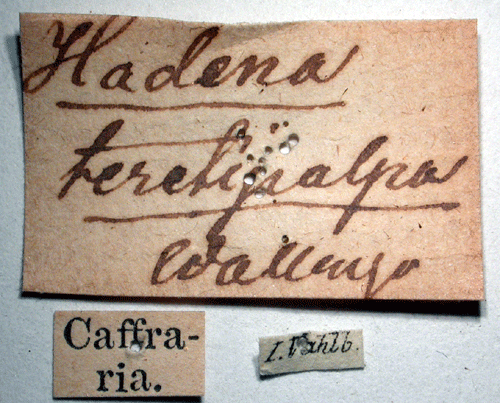 Hadena
teretipalpa
Wallengr
Caffra-
ria.
I. Vahlb.